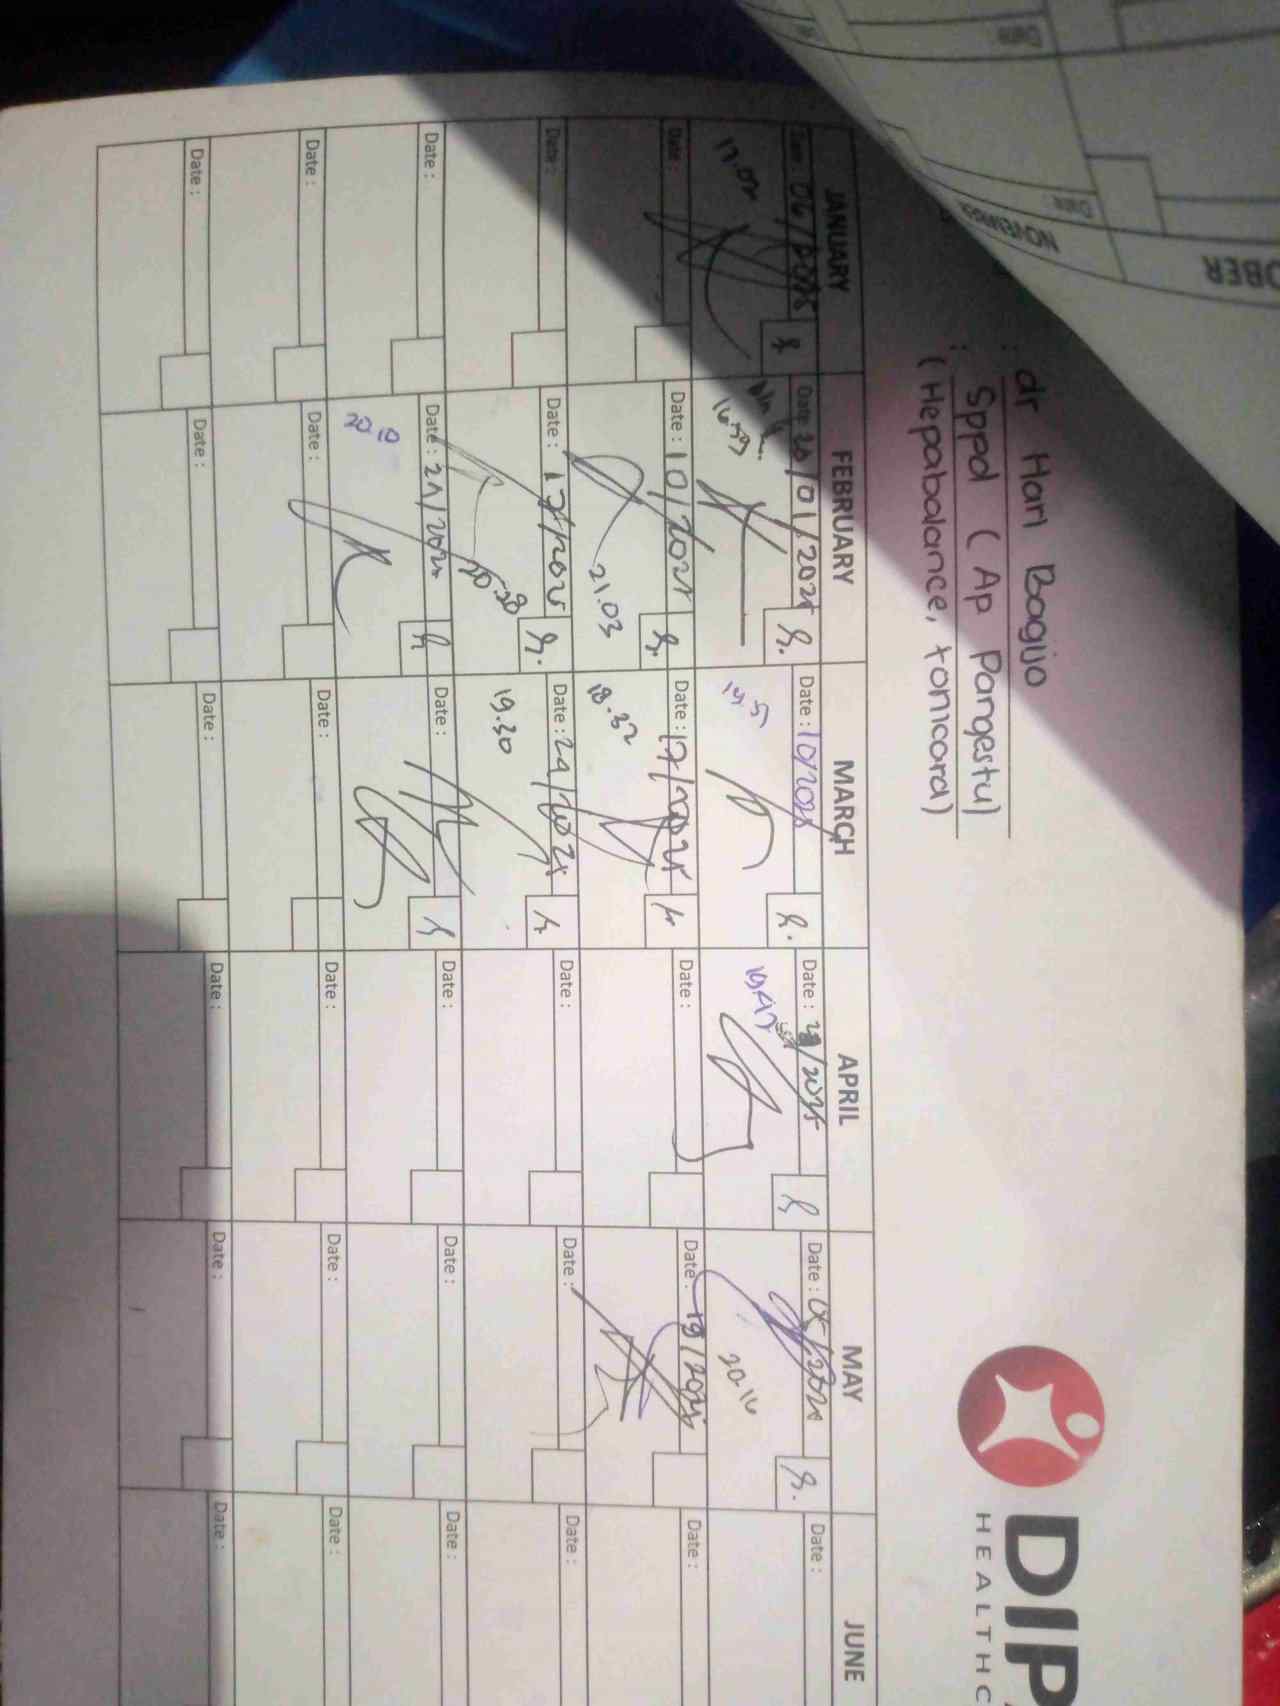 DIP
HEALTHC
: dr Hari Bagijo
: Sppd ( Ap Pangestu)
( Hepabalance, tonicard)
JANUARY
FEBRUARY
MARCH
APRIL
MAY
JUNE
Date: 06/2025
Date: 20/01/2025
Date: 10/2025
Date:
Date: 05/2025
Date:
17.02
16.59
19.51
19.47
20.16
Date:
Date: 10/2025
Date: 17/2025
Date:
Date: 19/2025
Date:
21.03
18.32
Date:
Date: 17/2025
Date: 24/2025
Date:
Date:
Date:
20.28
19.30
Date:
Date: 24/2025
Date:
Date:
Date:
Date:
20.10
Date:
Date:
Date:
Date:
Date:
Date:
Date:
Date:
Date:
Date:
Date:
Date:
OBER
NOVEMBER
Date:
Date: